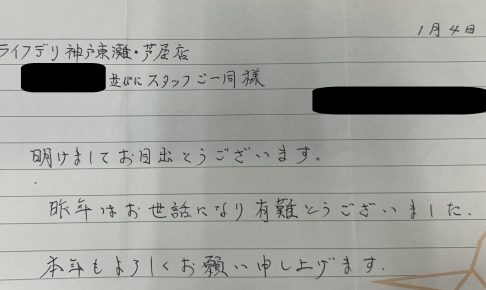 1月4日
ライフデリ神戸東灘・芦屋店
並びにスタッフご一同様
明けましてお目出とうございます。
昨年はお世話になり有難とうございました.
本年もよろしくお願い申し上げます.